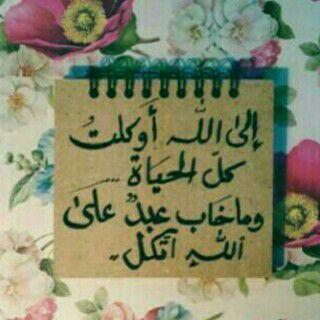 إلى الله أوكلتُ
كلّ الحياة ..
وما خاب عبدٌ على
اللهِ اتّكل ..